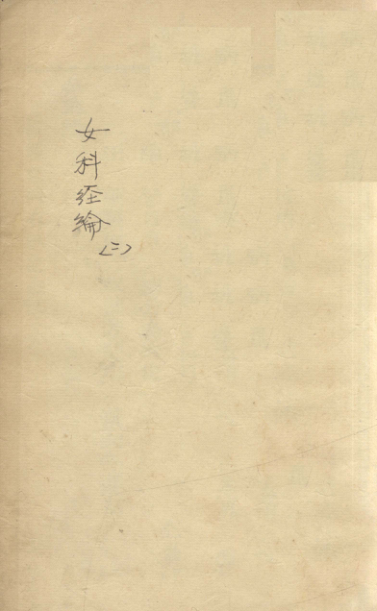 女科经纶(二)